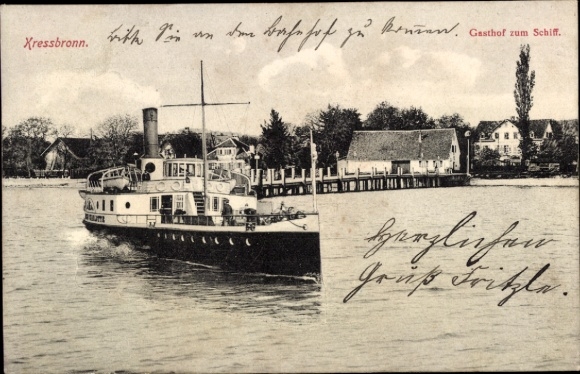 Kressbronn.
bitte Sie an den Bahnhof zu kommen.
Gasthof zum Schiff.
Herzlichen
Gruß Fritzle.